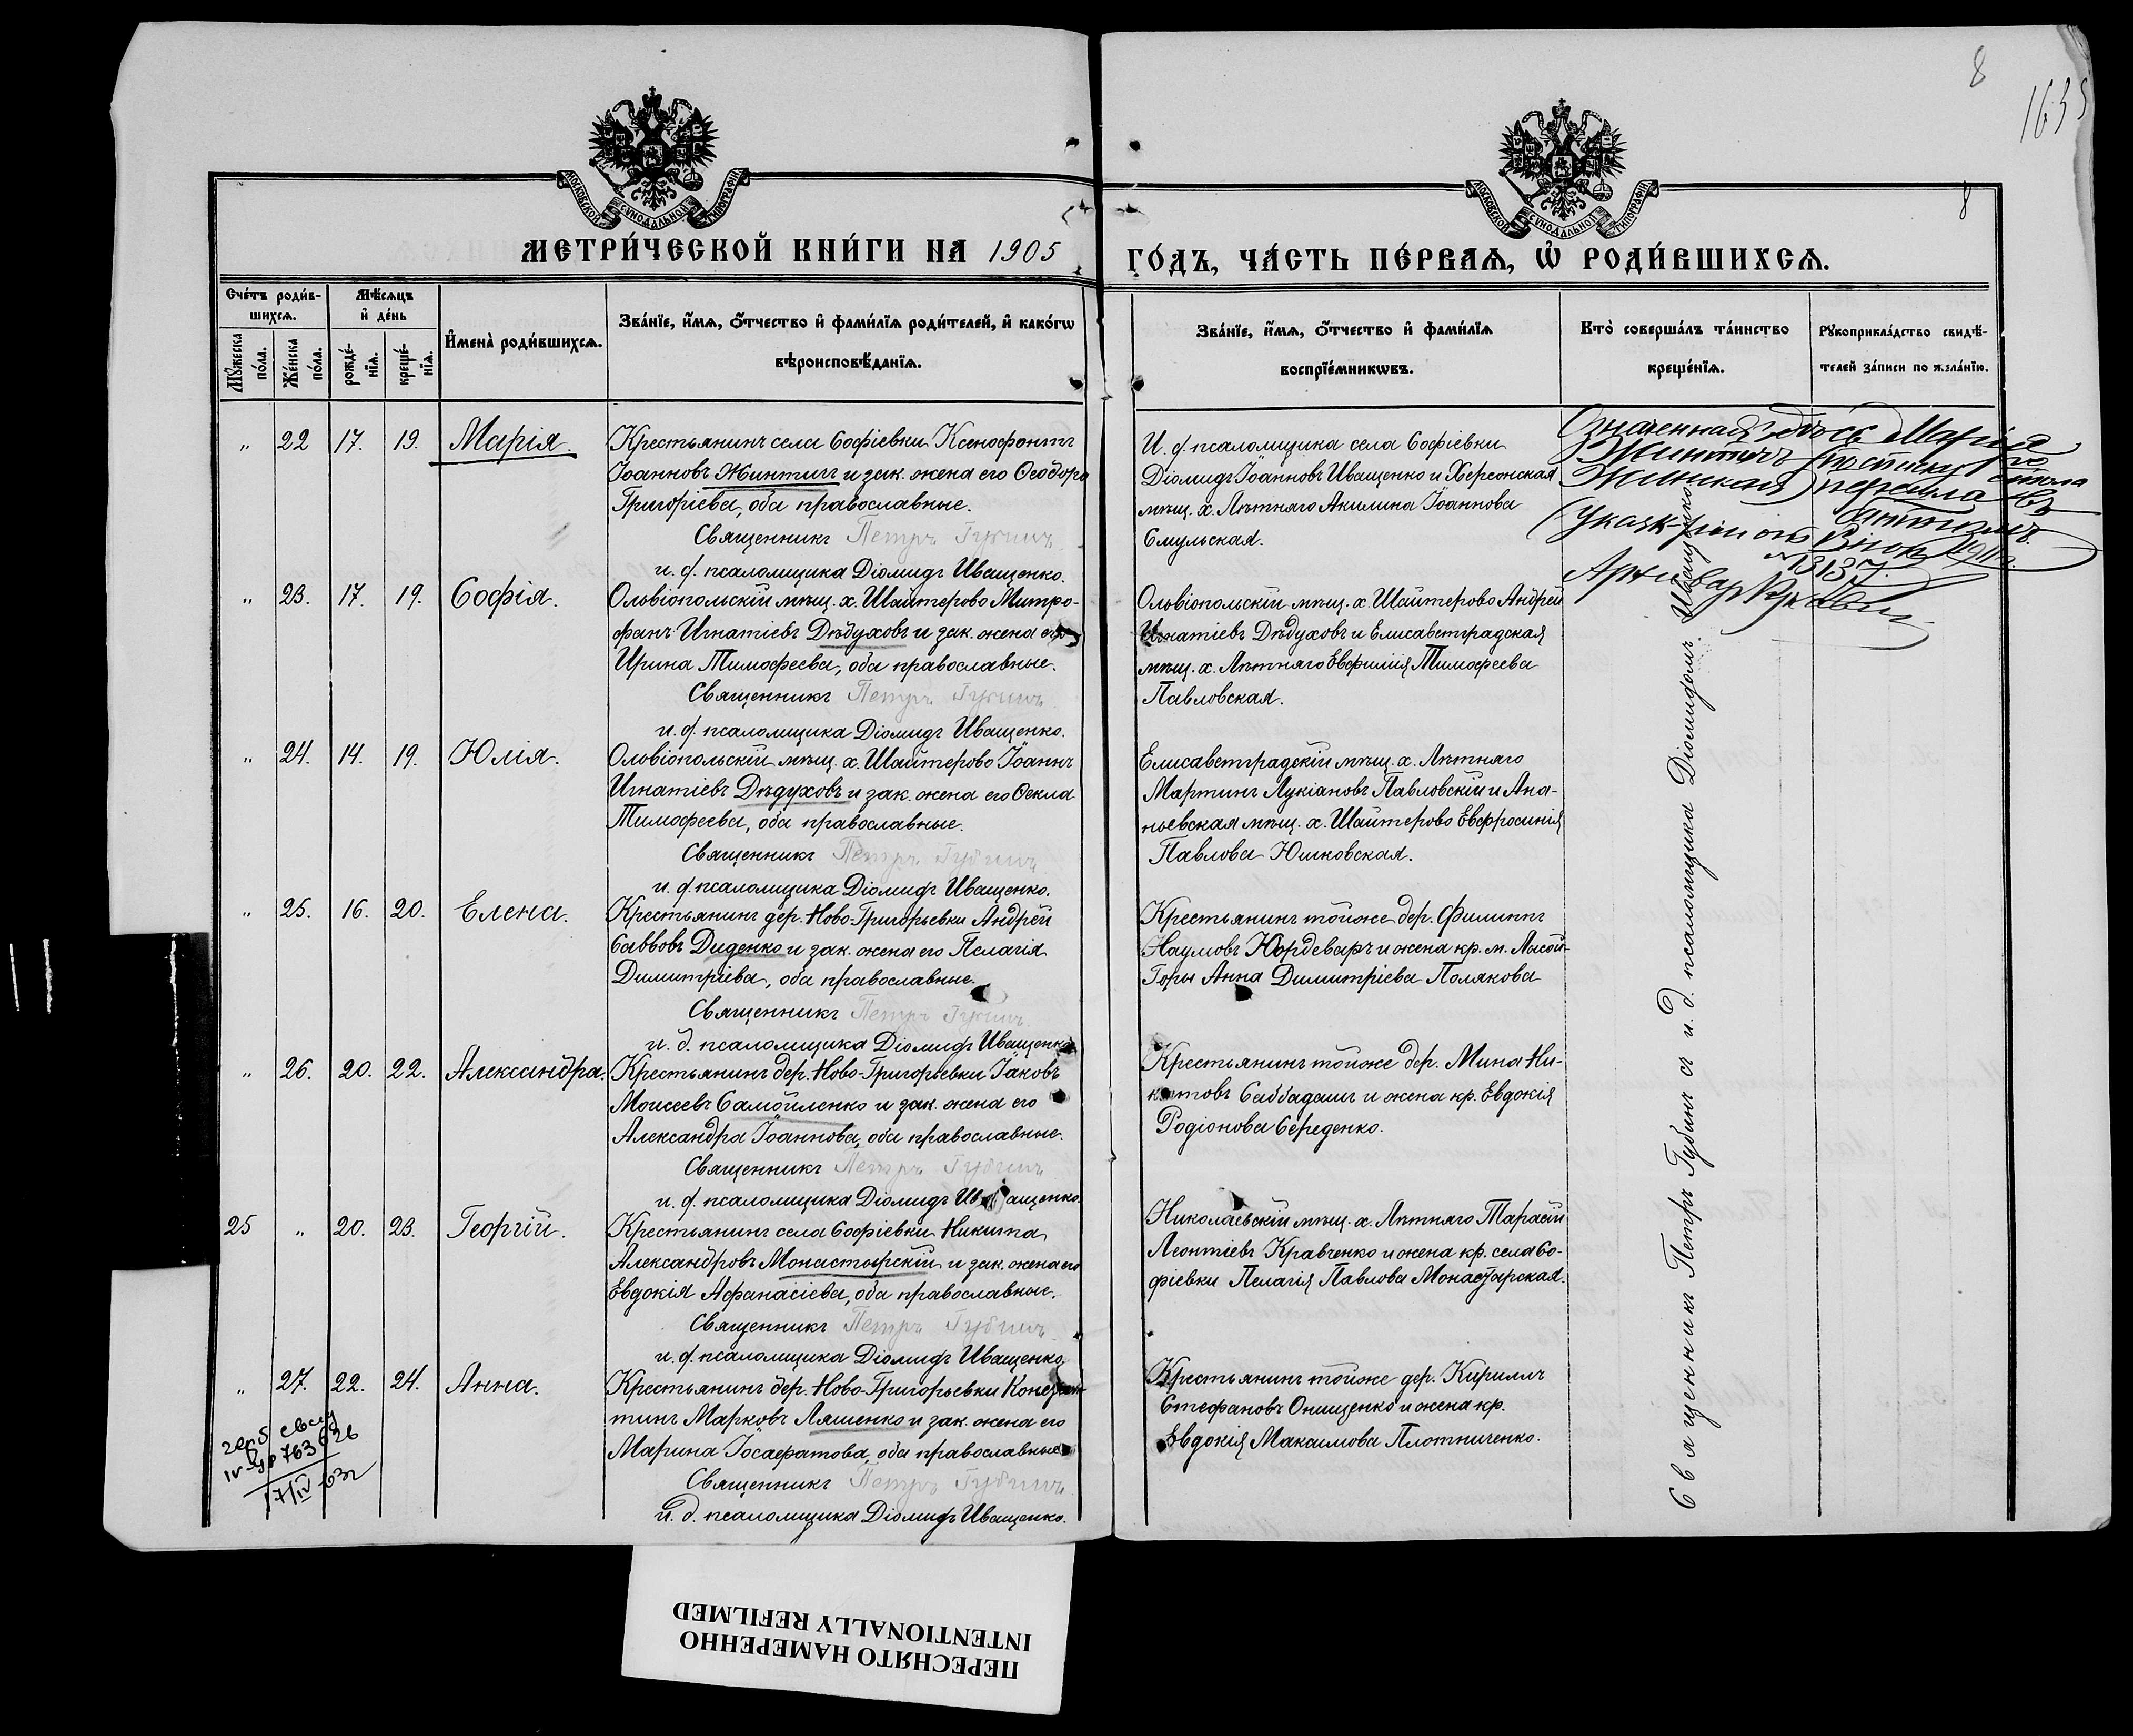 8
1635
8
МОСКОВСКОЙ СѴНОДАЛЬНОЙ ТИПОГРАФІИ
МОСКОВСКОЙ СѴНОДАЛЬНОЙ ТИПОГРАФІИ
МЕТРИ́ЧЕСКОЙ КНИ́ГИ НА 1905
ГО́ДЪ, ЧА́СТЬ ПЕ́РВАѦ, Ѽ РОДИ́ВШИХСѦ.
Сче́тъ роди́в-
шихсѧ.
Мꙋжеска по́ла.
Же́нска по́ла.
Мѣ́сѧцъ
и҆ де́нь
рожде́-
нїѧ.
креще́-
нїѧ.
И҆мена̀ роди́вшихсѧ.
Зва́нїе, и҆́мѧ, ѻ҆́тчество и҆ фами́лїѧ роди́телей, и҆ како́гѡ
вѣроисповѣ́данїѧ.
Зва́нїе, и҆́мѧ, ѻ҆́тчество и҆ фами́лїѧ
воспрїе́мникѡвъ.
Кто̀ соверша́лъ та́инство
креще́нїѧ.
Рꙋкоприкла́дство свидѣ́-
телей за́писи по жела́нїю.
„ 22 17. 19. Марія.
Крестьянинъ села Софіевки Ксенофонтъ
Іоанновъ Жинтичъ и зак. жена его Ѳеодора
Григоріева, оба православные.
Священникъ Петръ Губинъ
и. д. псаломщика Діомидъ Иващенко.
И. д. псаломщика села Софіевки
Діомидъ Іоанновъ Иващенко и Херсонская
мѣщ. х. Лѣтняго Акилина Іоаннова
Смульская.
Означенная Марія
перешла въ
№ 1313
„ 23. 17. 19. Софія.
Ольвіопольскій мѣщ. х. Шайтерово Митро-
фанъ Игнатіевъ Дѣдуховъ и зак. жена его
Ирина Тимофеева, оба православные.
Священникъ Петръ Губинъ
и. д. псаломщика Діомидъ Иващенко.
Ольвіопольскій мѣщ. х. Шайтерово Андрей
Игнатіевъ Дѣдуховъ и Елисаветградская
мѣщ. х. Лѣтняго Евфимія Тимофеева
Павловская.
„ 24. 14. 19. Юлія.
Ольвіопольскій мѣщ. х. Шайтерово Іоаннъ
Игнатіевъ Дѣдуховъ и зак. жена его Ѳекла
Тимофеева, оба православные.
Священникъ Петръ Губинъ
и. д. псаломщика Діомидъ Иващенко.
Елисаветградскій мѣщ. х. Лѣтняго
Мартинъ Лукіановъ Павловскій и Ана-
ньевская мѣщ. х. Шайтерово Евфросинія
Павлова Юшковская.
„ 25. 16. 20. Елена.
Крестьянинъ дер. Ново-Григорьевки Андрей
Савовъ Диденко и зак. жена его Пелагія
Димитріева, оба православные.
Священникъ Петръ Губинъ
и. д. псаломщика Діомидъ Иващенко
Крестьянинъ тойже дер. Филиппъ
Наумовъ и жена кр. м. Лысой-
Горы Анна Димитріева Полякова
„ 26. 20. 22. Александра.
Крестьянинъ дер. Ново-Григорьевки Іаковъ
Моисеевъ Самойленко и зак. жена его
Александра Іоаннова, оба православные.
Священникъ Петръ Губинъ
и. д. псаломщика Діомидъ Иващенко.
Крестьянинъ тойже дер. Мина Ни-
китовъ Саббадашъ и жена кр. Евдокія
Родіонова Середенко.
25 „ 20. 23. Георгій.
Крестьянинъ села Софіевки Никита
Александровъ Монастырскій и зак. жена его
Евдокія Афанасіева, оба православные.
Священникъ Петръ Губинъ
и. д. псаломщика Діомидъ Иващенко
Николаевскій мѣщ. х. Лѣтняго Тарасій
Леонтіевъ Кравченко и жена кр. села Со-
фіевки Пелагія Павлова Монастырская.
„ 27. 22. 24. Анна.
Крестьянинъ дер. Ново-Григорьевки Констан-
тинъ Марковъ Ляшенко и зак. жена его
Марина Іосафатова, оба православные
Священникъ Петръ Губинъ
и. д. псаломщика Діомидъ Иващенко.
Крестьянинъ тойже дер. Кириллъ
Стефановъ Онищенко и жена кр.
Евдокія Максимова Плотниченко.
Священникъ Петръ Губинъ съ и. д. псаломщика Діомидомъ Иващенко.
17/IV
ПЕРЕСНЯТО НАМЕРЕННО
INTENTIONALLY REFILMED